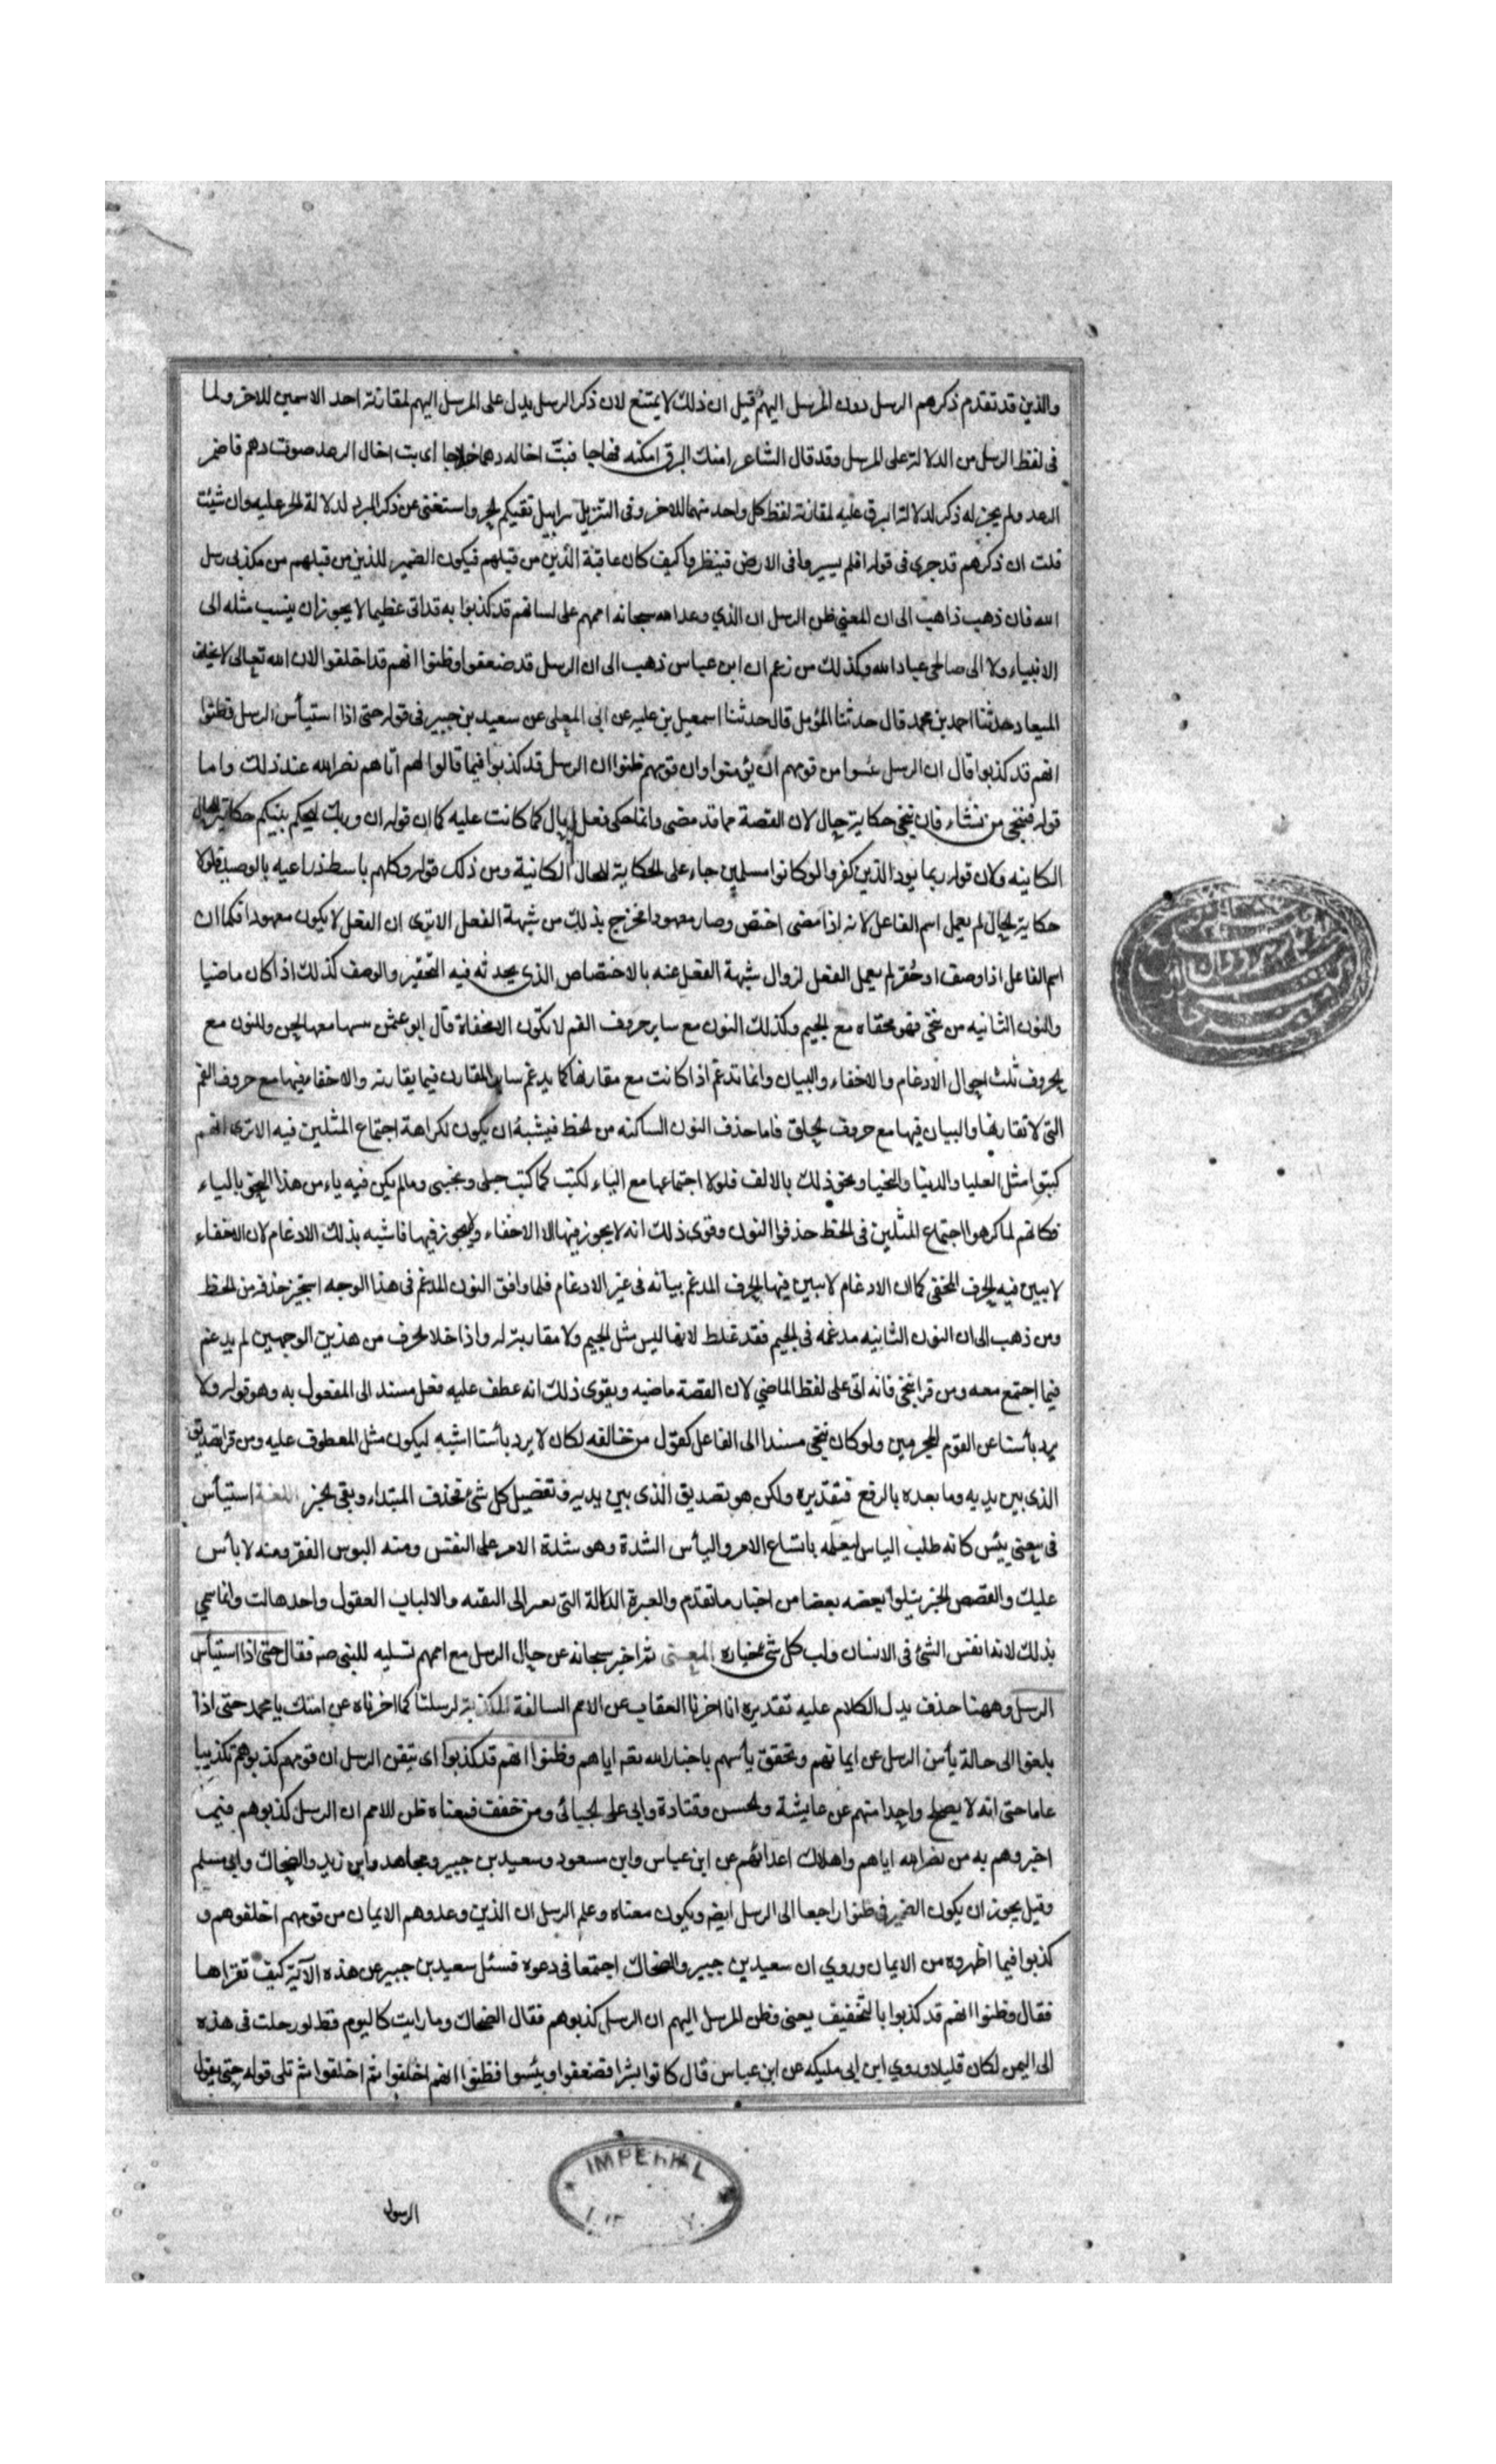 والذين قد تقدم ذكرهم الرسل دون المرسل اليهم قيل ان ذلك لا يمتنع لان ذكر الرسل يدل على المرسل اليهم لمقارنة احد الاسمين للاخر ولما
فى لفظ الرسل من الدلالة على المرسل وقد قال الشاعر امنك البرق امكنه فهاجا فبت اخاله دهما خلاجا اى بت اخال الرعد صوت دهم فاضمر
الرعد ولم يجز له ذكر لدلالة البرق عليه لمقارنة لفظ كل واحد منهما للاخر وفى التنزيل سرابيل تقيكم الحر واستغنى عن ذكر البرد لدلالة الحر عليه وان شئت
قلت ان ذكرهم قد جرى فى قوله افلم يسيروا فى الارض فينظروا كيف كان عاقبة الذين من قبلهم فيكون الضمير للذين من قبلهم من مكذبى رسل
الله فان ذهب ذاهب الى ان المعنى ظن الرسل ان الذي وعد الله سبحانه اممهم على لسانهم قد كذبوا به قد اتى عظيما لا يجوز ان ينسب مثله الى
الانبياء ولا الى صالحى عباد الله وكذلك من زعم ان ابن عباس ذهب الى ان الرسل قد ضعفوا وظنوا انهم قد اخلفوا لان الله تعالى لا يخلف
الميعاد حدثنا احمد بن محمد قال حدثنا المؤمل قال حدثنا اسمعيل بن عليه عن ابى المعلى عن سعيد بن جبير فى قوله حتى اذا استيأس الرسل وظنوا
انهم قد كذبوا قال ان الرسل يئسوا من قومهم ان يؤمنوا وان قومهم ظنوا ان الرسل قد كذبوا فيما قالوا لهم اتاهم نصر الله عند ذلك واما
قوله فننجى من نشاء فان ننجى حكاية حال لان القصة مما قد مضى وانما حكى فعل الحال كما كانت عليه كما ان قوله ان ربك ليحكم بينكم حكاية الحال
الكاينه ولان قوله ربما يود الذين كفروا لو كانوا مسلمين جاء على الحكاية للحال الكائنة ومن ذلك قوله وكلبهم باسط ذراعيه بالوصيد فلولا
حكاية الحال لم يعمل اسم الفاعل لانه اذا مضى اختص وصار معهودا فخرج بذلك من شبهة الفعل الا ترى ان الفعل لا يكون معهودا فكما ان
اسم الفاعل اذا وصف او حقر لم يعمل الفعل لزوال شبهة الفعل عنه بالاختصاص الذى يحدثه فيه التحقير والوصف كذلك اذا كان ماضيا
والنون الثانيه من ننجى فهو مخفاه مع الجيم وكذلك النون مع ساير حروف الفم لا تكون الا مخفاة قال ابو عثمن تبيينها معها لحن وللنون مع
الحروف ثلث احوال الادغام والاخفاء والبيان وانما تدغم اذا كانت مع مقاربها كما يدغم ساير المقارب فيما يقاربه والاخفاء فيها مع حروف الفم
التى لا تقاربها والبيان فيها مع حروف الحلق فاما حذف النون الساكنه من الخط فيشبه ان يكون لكراهة اجتماع المثلين فيه الا ترى انهم
كتبوا مثل العليا والدنيا والمحيا ونحو ذلك بالالف فلولا اجتماعها مع الياء لكتب كما كتب حبلى وبخشى وما لم يكن فيه ياء من هذا النحو بالياء
فكانهم لما كرهوا اجتماع المثلين فى الخط حذفوا النون وقوى ذلك انه لا يجوز فيها الا الاخفاء ولا يجوز فيها فاشبه بذلك الادغام لان الاخفاء
لا يبين فيه الحرف المخفى كما ان الادغام لا يبين فيها الحرف المدغم بيانه فى غير الادغام فلما وافق النون المدغم فى هذا الوجه استجيز حذفه من الخط
ومن ذهب الى ان النون الثانيه مدغمه فى الجيم فقد غلط لانها ليس مثل الجيم ولا مقاربة له واذا خلا الحرف من هذين الوجهين لم يدغم
فيما اجتمع معه ومن قرا نجى فانه اتى على لفظ الماضي لان القصة ماضيه ويقوى ذلك انه عطف عليه فعل مسند الى المفعول به وهو قوله ولا
يرد بأسنا عن القوم المجرمين ولو كان ننجى مسندا الى الفاعل كقول من خالفه لكان لا يرد بأسنا اشبه ليكون مثل المعطوف عليه ومن قرا تصديق
الذى بين يديه وما بعده بالرفع فتقديره ولكن هو تصديق الذى بين يديه وتفصيل كل شئ فحذف المبتداء وبقى الخبر اللغة استيأس
فى معنى يئس كانه طلب الياس لعلمه بامتناع الامر والبأس الشدة وهو شدة الامر على النفس ومنه البوس الفقر ومنه لا بأس
عليك والقصص الخبر يتلوا بعضه بعضا من اخبار ما تقدم والعبرة الدلالة التى تعبر الى البقية والالباب العقول واحدها لب وانما سمي
بذلك لانه انفس الشئ فى الانسان ولب كل شئ خياره المعنى ثم اخبر سبحانه عن حال الرسل مع اممهم تسليه للنبى صم فقال حتى اذا استيأس
الرسل وههنا حذف يدل الكلام عليه تقديره انا اخرنا العقاب عن الامم السالفة المكذبة لرسلنا كما اخرناه عن امتك يا محمد حتى اذا
بلغوا الى حالة يأس الرسل عن ايمانهم وتحقق يأسهم باخبار الله تعم اياهم وظنوا انهم قد كذبوا اى تيقن الرسل ان قومهم كذبوهم تكذيبا
عاما حتى انه لا يصلح واحدا منهم عن عايشة والحسن وقتادة وابى على الجبائى ومن خفف فمعناه ظن الامم ان الرسل كذبوهم فيما
اخبروهم به من نصر الله اياهم واهلاك اعدائهم عن ابن عباس وابن مسعود وسعيد بن جبير ومجاهد وابن زيد والضحاك وابى مسلم
وقيل يجوز ان يكون الضمير فى ظنوا راجعا الى الرسل ايضا ويكون معناه وعلم الرسل ان الذين وعدوهم الايمان من قومهم اخلفوهم و
كذبوا فيما اظهروه من الايمان وروي ان سعيد بن جبير والضحاك اجتمعا فى دعوة فسئل سعيد بن جبير عن هذه الآية كيف تقراها
فقال وظنوا انهم قد كذبوا بالتخفيف يعنى وظن المرسل اليهم ان الرسل كذبوهم فقال الضحاك وما رايت كاليوم قط لو رحلت فى هذه
الى اليمن لكان قليلا وروي ابن ابى مليكه عن ابن عباس قال كانوا بشرا فضعفوا ويئسوا فظنوا انهم اخلفوا ثم تلى قوله حتى يقول
الرسول
IMPERIAL